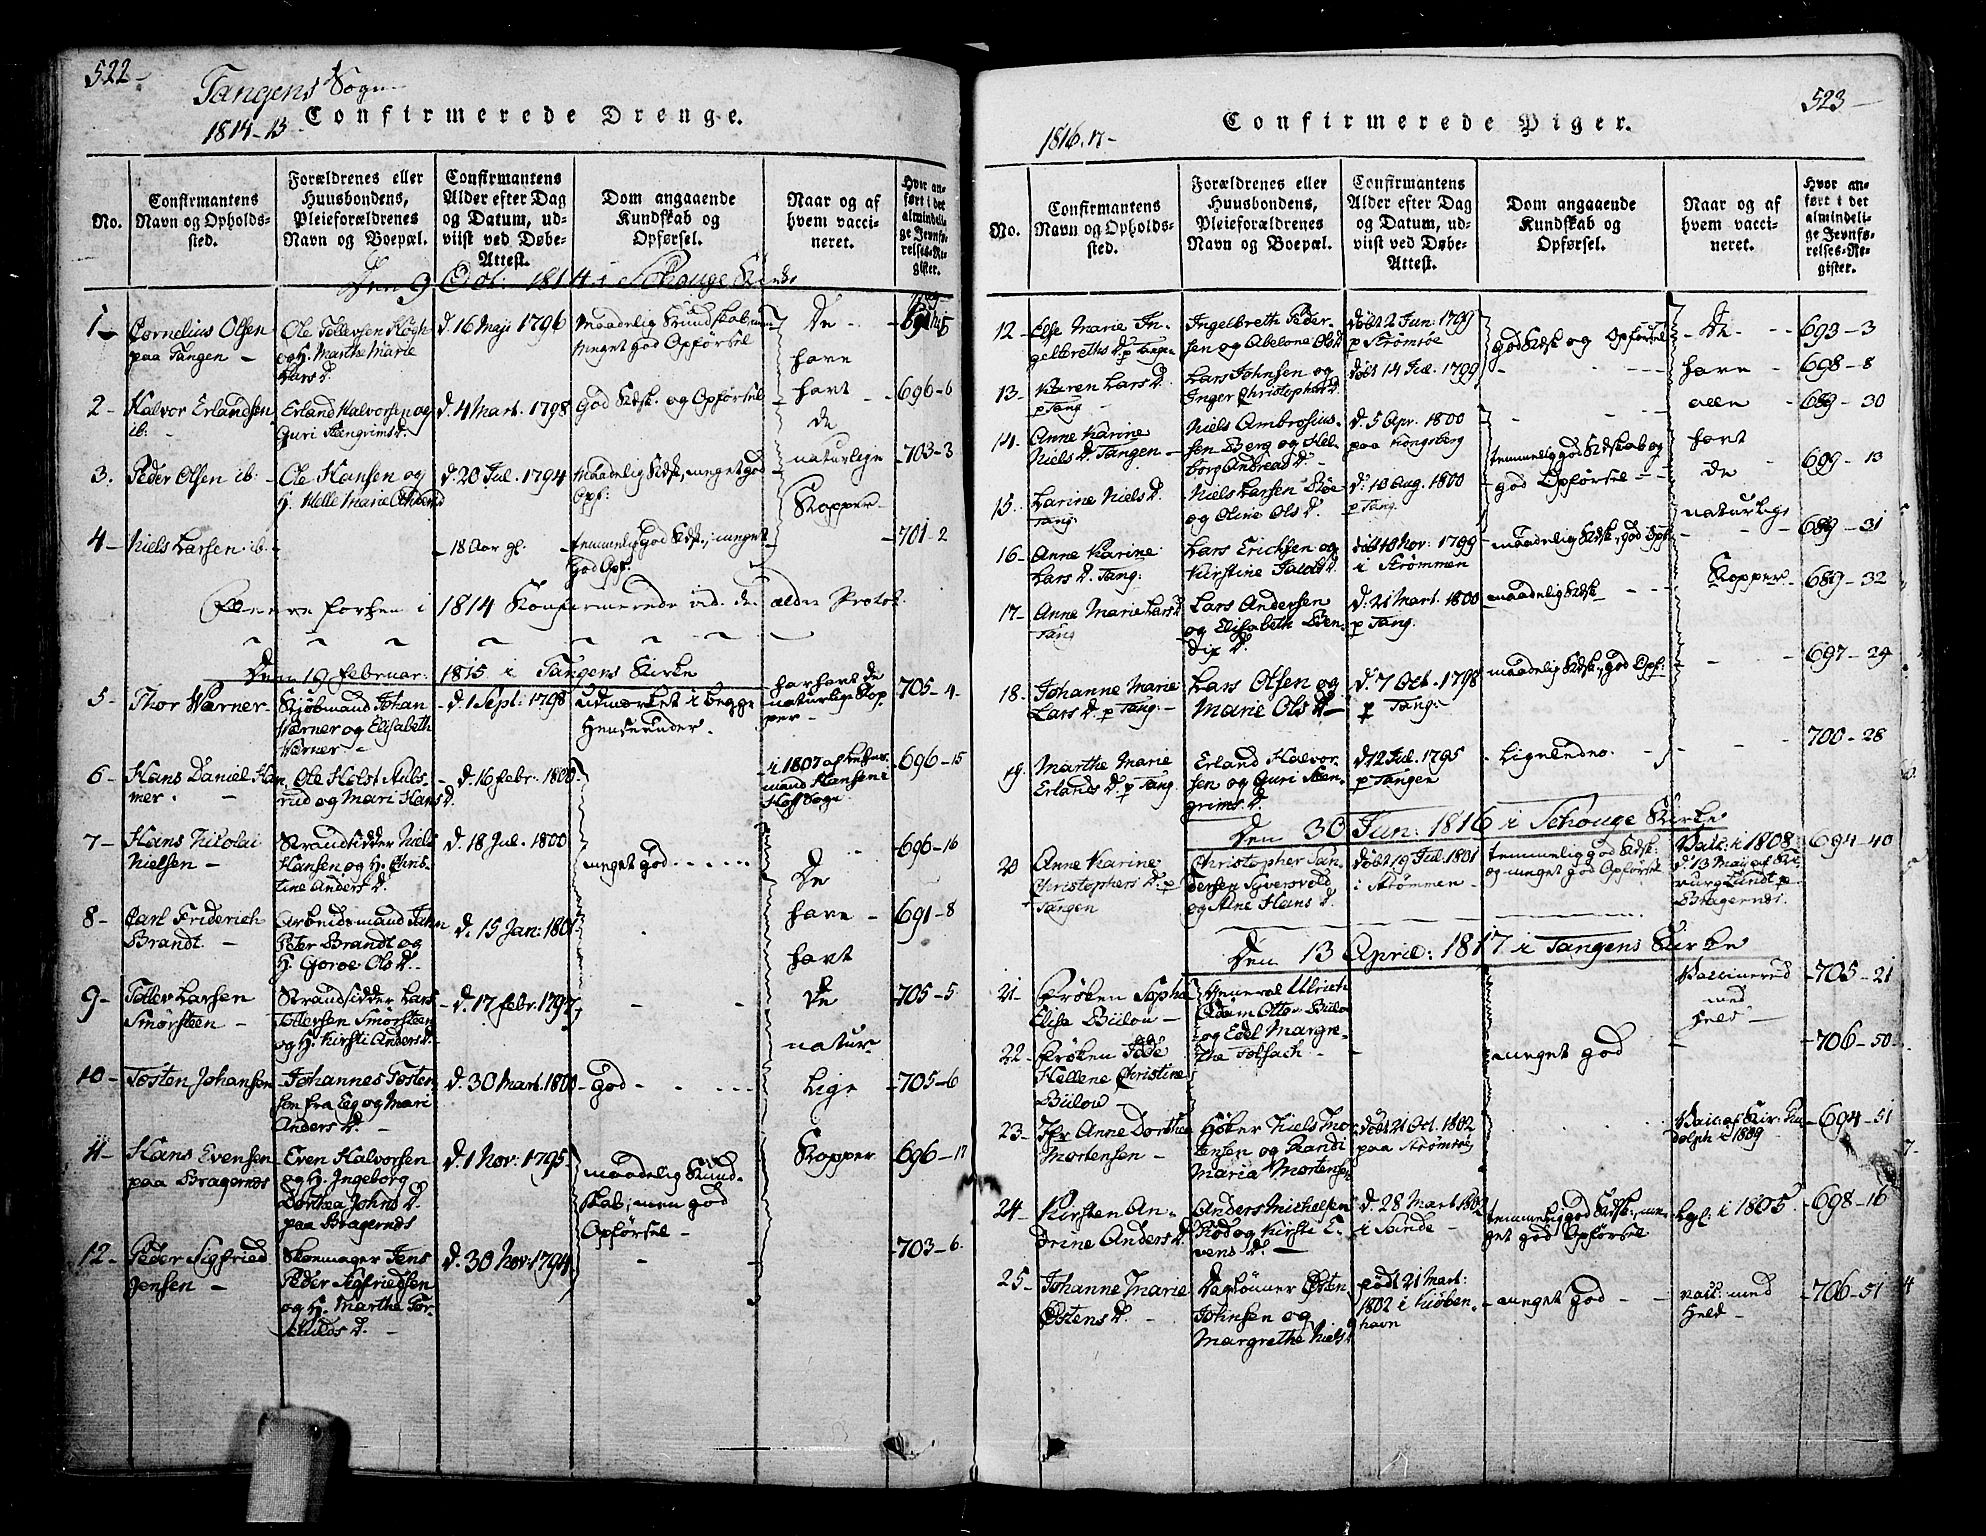 522
Tangens Sogn
1814-15 Confirmerede Drenge.
No.
Confirmantens
Navn og Opholds-
sted.
Forældrenes eller
Huusbondens,
Pleieforældrenes
Navn og Boepæl.
Confirmantens
Alder efter Dag
og Datum, ud-
viist ved Døbe-
Attest.
Dom angaaende
Kundskab og
Opførsel.
Naar og af
hvem vacci-
neret.
Hvor an-
ført i det
almindeli-
ge Jevnfø-
relses-Re-
gister.
Den 9 Oct: 1814 i Schouge Kirke
1 Cornelius Olsen
paa Tangen
Ole Tollevsen Høgh
og H. Marthe Marie
Lars D.
d. 16 Maji 1796
Maadelig Kundskab, men
meget god Opførsel
De
have
havt
de
naturlige
Kopper
2 Halvor Erlandsen
ib:
Erland Halvorsen og
Guri Steengrims D.
d. 4 Mart. 1798
God Kdsk. og Opførsel
696-6
3. Peder Olsen ib:
Ole Hansen og
d. 20 Jul. 1794
Maadelig Kdsk, meget god
Opf:
703-3
4 Niels Larsen ib.
18 Aar gl.
temmelig god Kdsk., meget
god Opf.
701-2
1814 Konfirmerede vid. den ældre Protok.
Den 12 Februar: 1815 i Tangens Kirke
5 Thor Wærner
Kjøbmand Johan
Wærner og Elisabeth
Wærner
d. 1 Sept: 1798
udmærket i begge
Henseender.
har havt de
naturlige Kop-
per
705-4
6 Hans Daniel Ham-
mer.
Ole Holst Auls-
rud og Mari Hans D.
d. 16 febr: 1800
i 1807 af
mand Hansen i
Hoff Sogn
696-15
7 Hans Nicolai
Nielsen
Strandsidder Niels
Hansen og H. Chris-
tine Anders D.
d. 18 Jul. 1800
meget god
De
have
havt
de
natur-
lige
Kopper
696-16
8 Carl Friderich
Brandt
Arbeidsmand John
Peter Brandt og
H. Goroe Ols D.
d. 15 Jan: 1801
691-8
9 Tollev Larsen
Smørsteen
Strandsidder Lars
Tollevsen Smørsteen
og H. Kirsti Anders D.
d. 17 febr. 1797
705-5
10 Tosten Johansen
Johannes Tosten-
sen fra Eeg og Mari
Anders D.
d. 30 Mart. 1800
God
705-6
11 Hans Evensen
paa Bragernes
Even Halvorsen
og H. Ingeborg
Dorthea Johns D.
paa Bragernes
d. 1 Nov: 1795
maadelig Kund-
skab; men god
Opførsel
696-17
12 Peder Sigfried
Jensen
Skomager Jens
Peder Sigfriedsen
og H. Marthe Tor-
kilds D.
d. 30 Nov: 1794
703-6
523
1816.17 Confirmerede Piger.
No.
Confirmantens
Navn og Opholds-
sted.
Forældrenes eller
Huusbondens,
Pleieforældrenes
Navn og Boepæl.
Confirmantens
Alder efter Dag
og Datum, ud-
viist ved Døbe-
Attest.
Dom angaaende
Kundskab og
Opførsel.
Naar og af
hvem vacci-
neret.
Hvor an-
ført i det
almindeli-
ge Jevnfø-
relses-Re-
gister.
12 Else Marie In-
gelbreths D. p Tangen
Ingelbreth Peder-
sen og Abelone Ols D
døbt 2 Jun: 1799
p Strømsøe
god Kdsk og Opførsel
De
have
alle
havt
de
naturlige
Kopper
693-3
13 Karen Lars D.
p Tang
Lars Johnsen og
Inger Christopher D.
døbt 14 Jul. 1799
698-8
14. Anne Karine
Niels D. Tangen
Niels Ambrosius-
sen Berg og Hel-
borg Andreas D.
d. 5 Apr. 1800
paa Kongsberg
temmelig god Kdskab og
god Opførsel
689-30
15. Larine Niels D.
Tang:
Niels Larsen Bøe
og Oline Ols D.
d. 10 Aug. 1800
p Tang.
699-13
16 Anne Karine
Lars D. Tang:
Lars Erichsen og
Kirstine D.
døbt 10 Nov: 1799
i Strømmen
maadelig Kdsk, god Opf.
689-31
17 Anne Marie Lars D.
Tang
Lars Andersen
og Elisabeth Ben-
dix D.
d. 21 Mart. 1800
p Tang.
maadelig Kdsk
689-32
18. Johanne Marie
Lars D. p Tang:
Lars Olsen og
Marie Ols D
d. 7 Oct. 1798
p Tang:
maadelig Kdsk, god Opf:
697-29
19. Marthe Marie
Erlands D. p Tang.
Erland Halvor-
sen og Guri Steen-
grims. D.
d 12 Jul. 1795
p Tangen
Ligeledes
700-28
Den 30 Jun: 1816 i Schouge Kirke
20 Anne Karine
Christophers D. p
Tangen
Christopher
dersen Syversvold
og Ane Hans D.
døbt 19 Jul. 1801
i Strømmen
temmelig god Kdsk:
og meget god Opførsel
Vacc: i 1808
d. 13 Maj af
Lundt p
Bragernes.
694-40
Den 13 April: 1817 i Tangens Kirke
21 Frøken Sopha
Elise Bülow
General Ulrich
Adam Otto Bülo
og Edel Margre-
the Tolsach
Vaccinered
med
Held
705-21
22 Frøken
Hellene Christine
Bülow
meget god
706-50
23 Jfr Anne Dorthea
Mortensen
Høker Niels Mor-
tensen og Randi
Maria Mortensen
døbt 21 Oct. 1802
paa Strømsøe
Vacc. af Kir. Ru-
dolph i 1809
694-51
24 Kirsten An-
drine Anders D.
Anders Michelsen
Rød og Kirsti E-
vens D.
d. 28 Mart 1802
i Sande
temmelig god Kdsk:, me-
get god Opførsel
i 1805
698-16
25 Johanne Marie
Østens D.
Daglønner Østen
Johnsen og
Margrethe Niels D
født 21 Mart:
1802 i Kiøben-
havn
meget god
vacc. med
Held
706-51